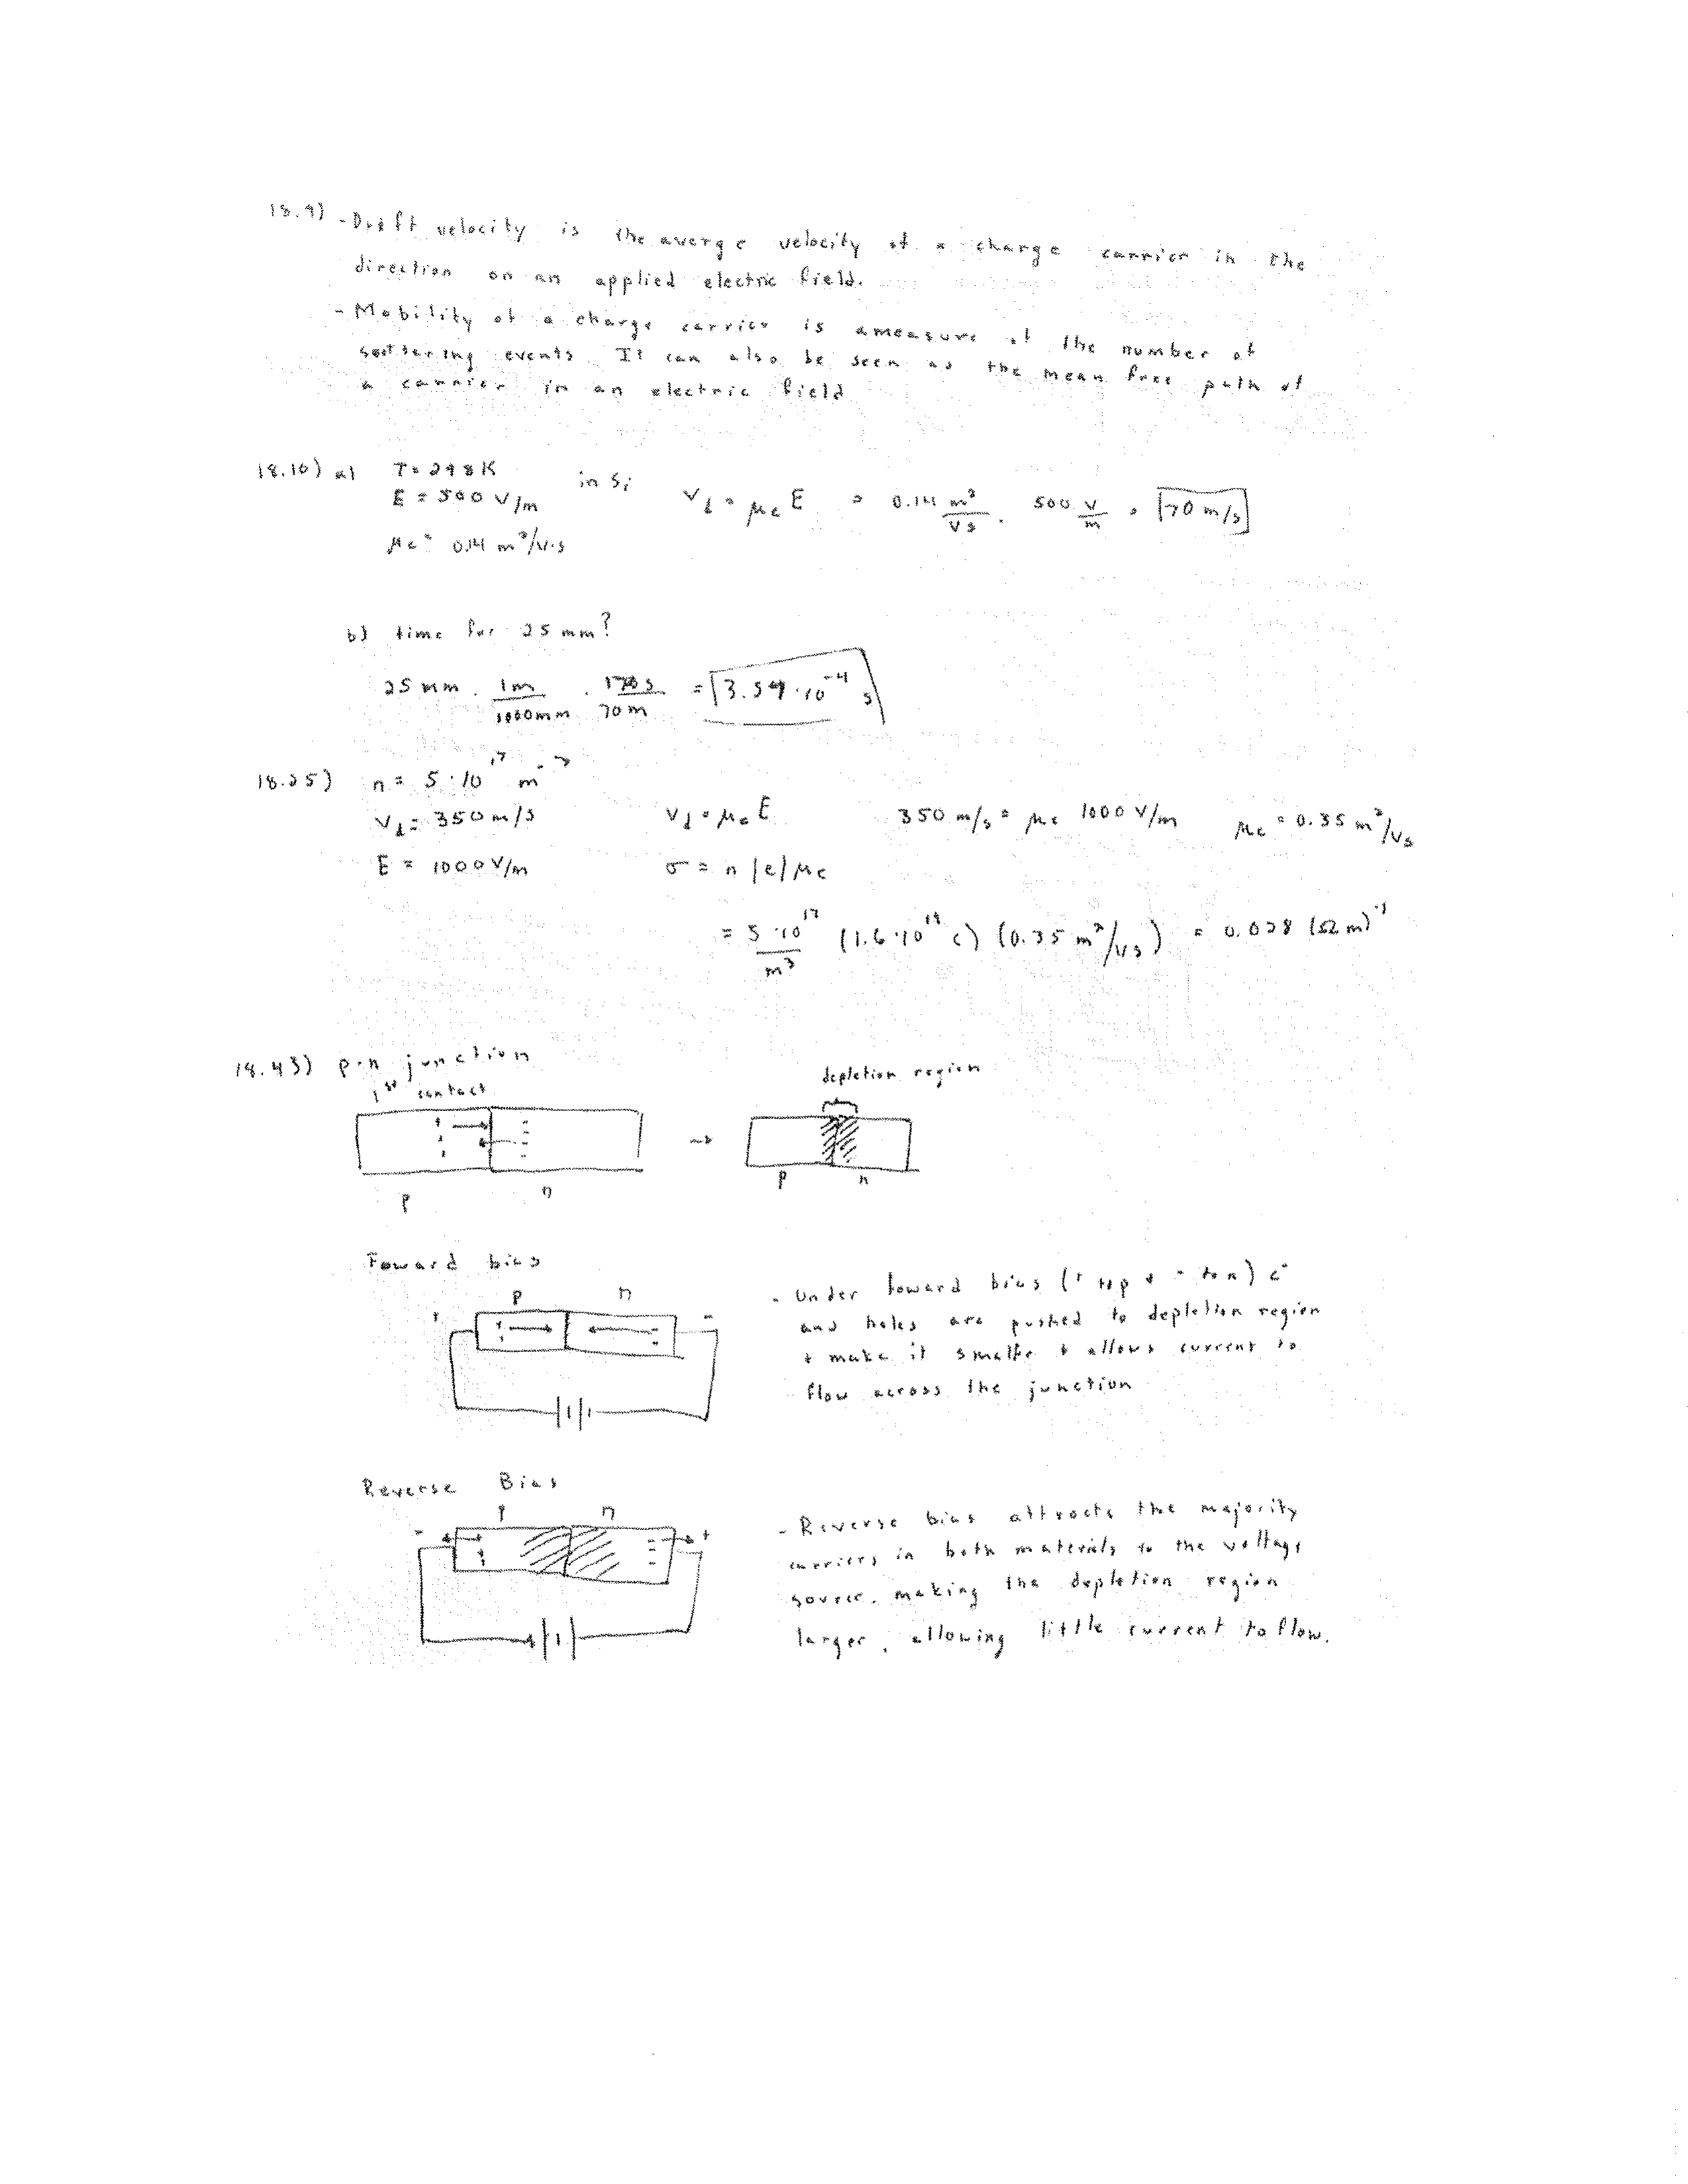 18.9) - Drift velocity is the averge velocity of a charge carrier in the
direction on an applied electric field.
- Mobility of a charge carrier is a measure of the number of
scattering events. It can also be seen as the mean free path of
a carrier in an electric field
18.10) a) T = 298 K in Si
E = 500 V/m v_d = μ_e E = 0.14 m²/Vs · 500 V/m = 70 m/s
μ_e = 0.14 m²/V·s
b) time for 25 mm?
25 mm · 1m/1000mm · s/70m = 3.59·10⁻⁴ s
18.25) n = 5·10¹⁷ m⁻³
v_d = 350 m/s v_d = μ_e E 350 m/s = μ_e 1000 V/m μ_e = 0.35 m²/Vs
E = 1000 V/m σ = n |e| μ_e
= 5·10¹⁷/m³ (1.6·10¹⁹ C) (0.35 m²/Vs) = 0.028 (Ω m)⁻¹
18.43) p-n junction
1st contact depletion region
+ - →
p n p n
Foward bias
p n
+ -
- Under foward bias (+ to p + - to n) e⁻
and holes are pushed to depletion region
+ make it smaller + allows current to
flow across the junction
Reverse Bias
p n
- +
- Reverse bias attracts the majority
carriers in both materials to the voltage
source, making the depletion region
larger, allowing little current to flow.